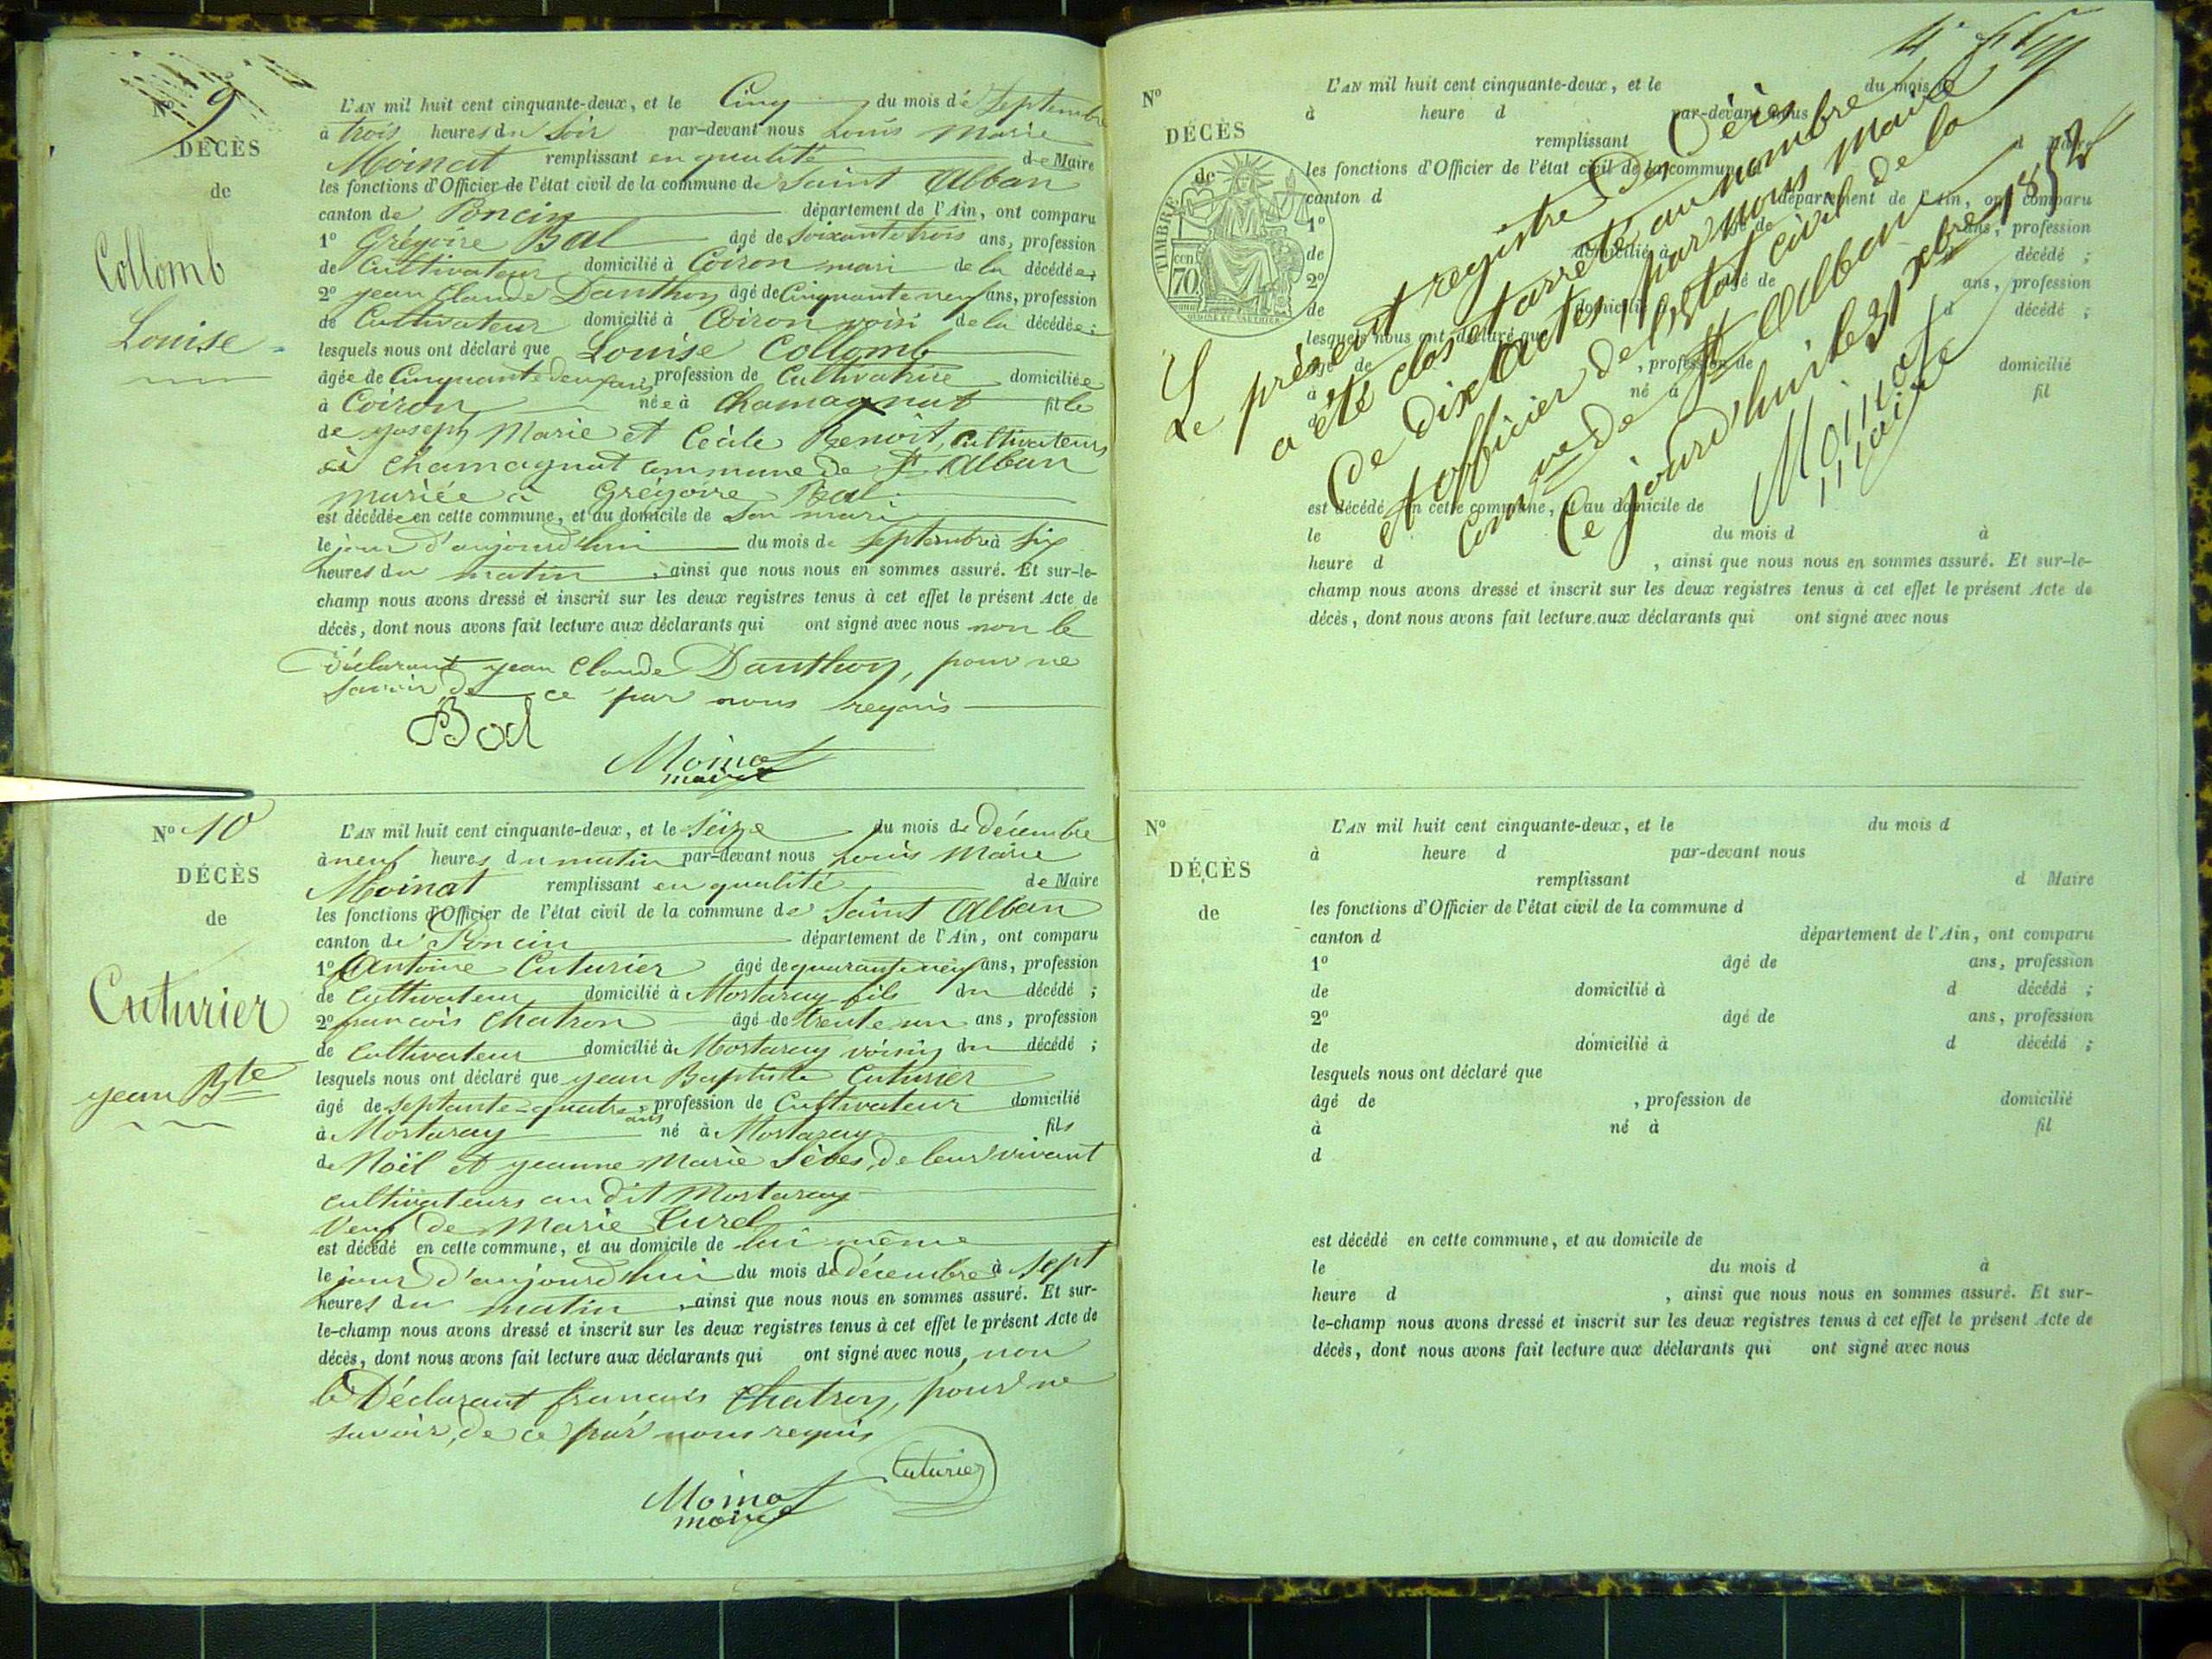 N° 9
DÉCÈS
de
Collomb
Louise
L'AN mil huit cent cinquante-deux, et le Cinq du mois de Septembre
à trois heures du Soir par-devant nous Louis Marie
Moinat remplissant en qualité de Maire
les fonctions d'Officier de l'état civil de la commune de Saint Alban
canton de Poncin département de l'Ain, ont comparu
1° Grégoire Bal âgé de Soixante trois ans, profession
de Cultivateur domicilié à Coiron mari de la décédée;
2° jean Claude Danthon âgé de Cinquante neuf ans, profession
de Cultivateur domicilié à Coiron voisin de la décédée;
lesquels nous ont déclaré que Louise Collomb
âgée de Cinquante deux ans, profession de Cultivatrice domiciliée
à Coiron née à Chamagnat fille
de joseph Marie et Cécile Benoit, cultivateurs
à Chamagnat commune de St Alban
mariée à Grégoire Bal
est décédée en cette commune, et au domicile de son mari
le jour d'aujourd'hui du mois de Septembre à six
heures du matin, ainsi que nous nous en sommes assuré. Et sur-le-
champ nous avons dressé et inscrit sur les deux registres tenus à cet effet le présent Acte de
décès, dont nous avons fait lecture aux déclarants qui ont signé avec nous non le
Déclarant jean Claude Danthon, pour ne
savoir de ce par nous requis
Bal
Moinat
maire
N° 10
DÉCÈS
de
Cuturier
jean Bte
L'AN mil huit cent cinquante-deux, et le Seize du mois de Décembre
à neuf heures du matin par-devant nous Louis Marie
Moinat remplissant en qualité de Maire
les fonctions d'Officier de l'état civil de la commune de Saint Alban
canton de Poncin département de l'Ain, ont comparu
1° Antoine Cuturier âgé de quarante neuf ans, profession
de Cultivateur domicilié à Mortaray fils du décédé ;
2° francois Chatron âgé de trente un ans, profession
de Cultivateur domicilié à Mortaray voisin du décédé ;
lesquels nous ont déclaré que jean Baptiste Cuturier
âgé de septante-quatre ans, profession de Cultivateur domicilié
à Mortaray né à Mortaray fils
de Noël et jeanne Marie Sèves, de leur vivant
cultivateurs au dit Mortaray
Veuf de Marie Curel
est décédé en cette commune, et au domicile de lui même
le jour d'aujourd'hui du mois de décembre à sept
heures du matin, ainsi que nous nous en sommes assuré. Et sur-
le-champ nous avons dressé et inscrit sur les deux registres tenus à cet effet le présent Acte de
décès, dont nous avons fait lecture aux déclarants qui ont signé avec nous, non
le Déclarant francois Chatron, pour ne
savoir, de ce par nous requis
Cuturier
Moinat
maire
N°
DÉCÈS
de
TIMBRE
70 cen
L'AN mil huit cent cinquante-deux, et le du mois d
à heure d par-devant nous
remplissant d Maire
les fonctions d'Officier de l'état civil de la commune d
canton d département de l'Ain, ont comparu
1° âgé de ans, profession
de domicilié à d décédé ;
2° âgé de ans, profession
de domicilié à d décédé ;
lesquels nous ont déclaré que
âgé de , profession de domicilié
à né à fil
d
est décédé en cette commune, et au domicile de
le du mois d à
heure d , ainsi que nous nous en sommes assuré. Et sur-le-
champ nous avons dressé et inscrit sur les deux registres tenus à cet effet le présent Acte de
décès, dont nous avons fait lecture aux déclarants qui ont signé avec nous
Le présent registre des Décès
a été clos et arrêté au nombre
de dix Actes, par nous maire
et officier de l'Etat civil de la
commune de St Alban
Ce jourd'hui le 31 xbre 1852
Moinat
maire
N°
DÉCÈS
de
L'AN mil huit cent cinquante-deux, et le du mois d
à heure d par-devant nous
remplissant d Maire
les fonctions d'Officier de l'état civil de la commune d
canton d département de l'Ain, ont comparu
1° âgé de ans, profession
de domicilié à d décédé ;
2° âgé de ans, profession
de domicilié à d décédé ;
lesquels nous ont déclaré que
âgé de , profession de domicilié
à né à fil
d
est décédé en cette commune, et au domicile de
le du mois d à
heure d , ainsi que nous nous en sommes assuré. Et sur-
le-champ nous avons dressé et inscrit sur les deux registres tenus à cet effet le présent Acte de
décès, dont nous avons fait lecture aux déclarants qui ont signé avec nous